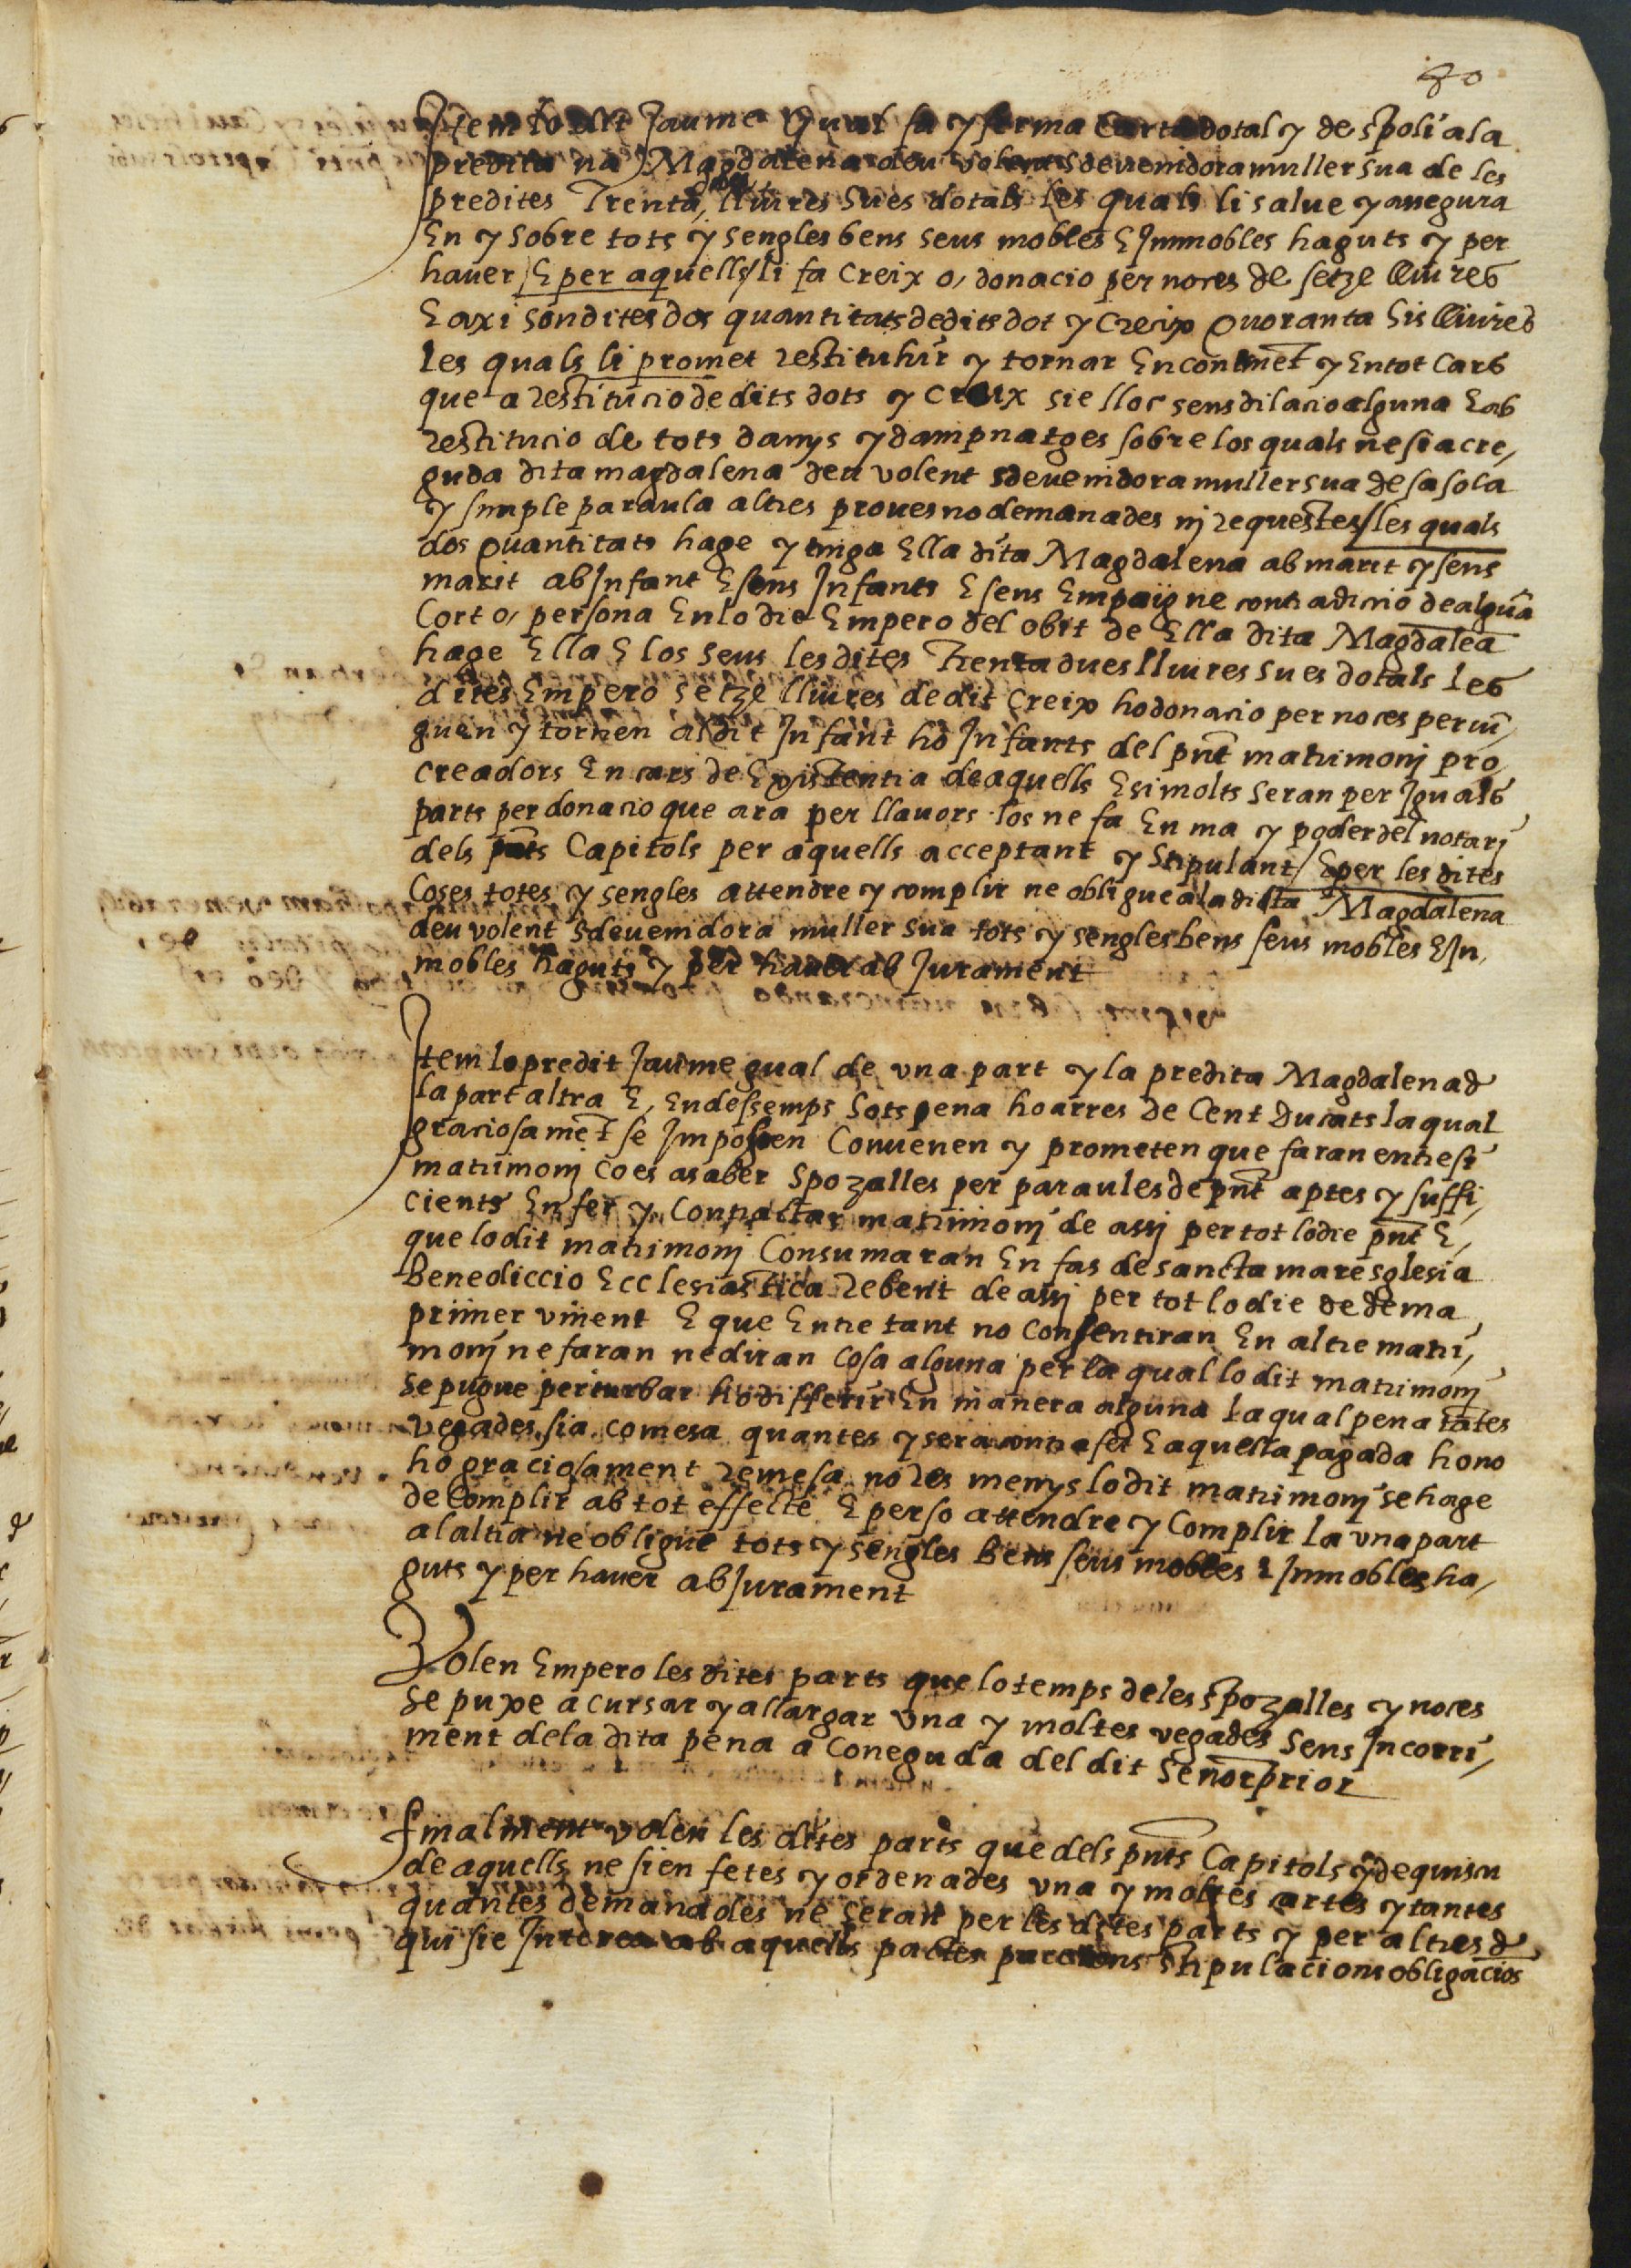 40
Item lo dit Jaume Gual fa y ferma Carta dotal y de spoli a la
predita na Magdalena deu volent sdevenidora muller sua de les
predites Trenta dues lliures sues dotals les quals li salve y assegura
En y sobre tots y sengles bens seus mobles E Inmobles haguts y per
haver / E per aquells / li fa Creix o, donacio per noces de setze lliures
E axi son dites dos quantitats de dits dot y Creix Quoranta sis lliures
les quals li promet restituhir y tornar Encontinẽt y En tot Cars
que a restitucio de dits dots y Creix sie lloc sens dilacio alguna E ab
restitucio de tots danys y dampnatges sobre los quals ne sia cre,
guda dita magdalena deu volent sdevenidora muller sua de sa sola
y simple paraula altres proves no demanades nj requestes / les quals
dos Quantitats hage y tinga Ella dita Magdalena ab marit y sens
marit ab Infant E sens Infants E sens Empaig ne contradicio de algũa
Cort o, persona En lo die Empero del obit de Ella dita Magdalea
hage Ella E los seus les dites Trenta dues lliures sues dotals les
dites Empero setze lliures de dit Creix ho donacio per noces pervĩ,
guen y tornen al dit Infant ho Infants del pnt matrimonj pro,
creadors En cars de Existentia de aquells E si molts seran per Iguals
parts per donacio que ara per llavors los ne fa En ma y poder del notarj
dels pnts Capitols per aquells acceptant y Stipulant / E per les dites
Coses totes y sengles attendre y complir ne obligue a la dicta Magdalena
deu volent sdevenidora muller sua tots y sengles bens seus mobles E In,
mobles haguts y per haver ab Jurament
Item lo predit Jaume gual de una part y la predita Magdalena d
la part altra E, Endessemps Sots pena ho arres de Cent Ducats la qual
graciosamẽt se Imposen Convenen y prometen que faran entre si
matrimonj co es a saber Spozalles per paraules de pnt aptes y suffi,
cients En fer y Contractar matrimonj de assj per tot lo die pnt E,
que lo dit matrimonj Consumaran En fas de sancta mare sglesia
Benediccio Ecclesiastica rebent de assj per tot lo die de dema
primer vinent E que Entretant no Consentiran En altre matri,
monj ne faran ne diran cosa alguna per la qual lo dit matrimonj
se pugue perturbar ho differir En manera alguna la qual pena tãtes
vegades sia comesa quantes y sera contrafet E aquella pagada ho no
ho graciosament remesa no res menys lo dit matrimonj se hage
de Complir ab tot effecte E per so attendre y Complir la una part
a laltra ne obligue tots y sengles Bens seus mobles E Inmobles ha,
guts y per haver ab Jurament
Volen Empero les dites parts que lo temps de les spozalles y noces
se puxe acursar y allargar una y moltes vegades Sens Incorri,
ment de la dita pena a Coneguda del dit Señor prior
finalment volen les dites parts que dels pnts Capitols y de quiscu
de aquells ne sien fetes y ordenades una y moltes cartes y tantes
quantes demanades ne seran per les dites parts y per altres d
qui sie Interes ab aquells pactes Stipulacions obligacios